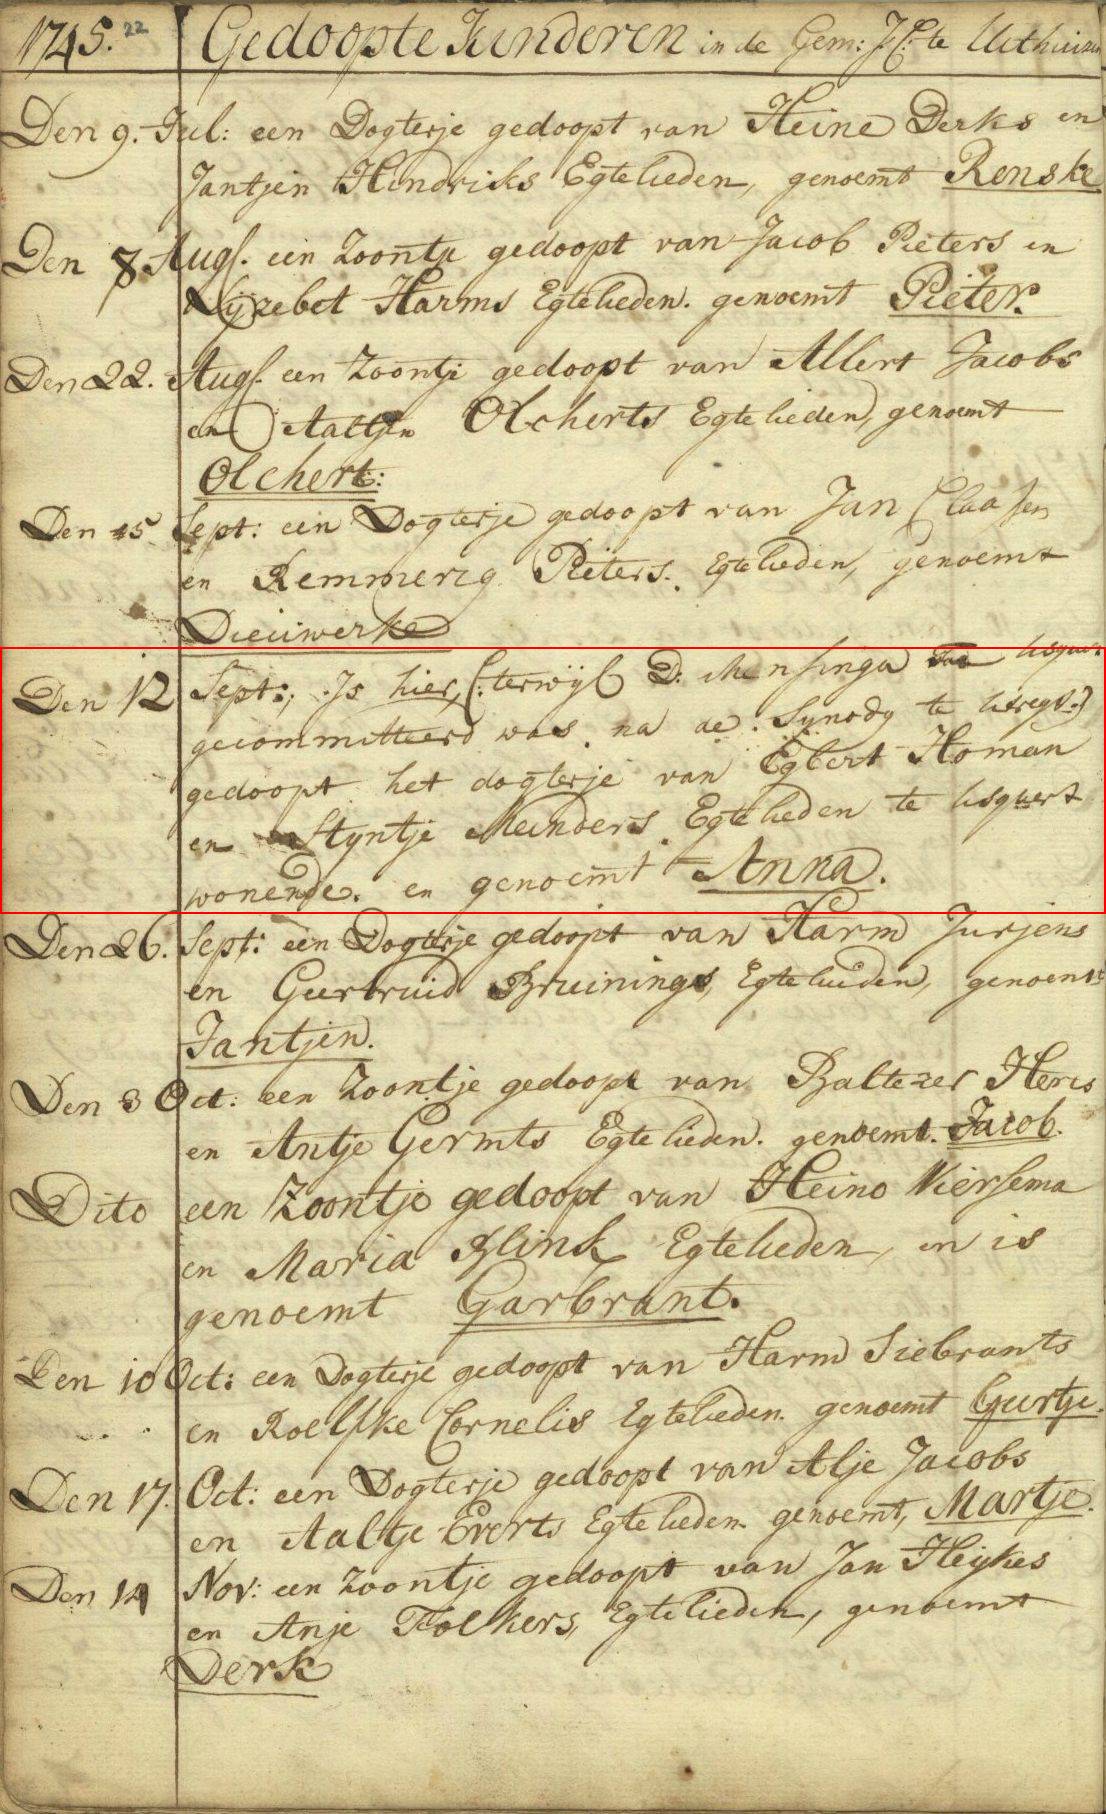 1745. 22 Gedoopte Kinderen in de Gem: J: C: te Uithuizen
Den 9. Jul: een Dogterje gedoopt van Heine Derks en
Jantjen Hindriks Egtelieden, genoemt Renske
Den 8 Augs. een Zoontje gedoopt van Jacob Pieters en
Lijzebet Harms Egtelieden. genoemt Pieter.
Den 22. Augs. een Zoontje gedoopt van Allert Jacobs
en Aaltjen Olcherts Egtelieden, genoemt
Olchert:
Den 5 Sept: een Dogterje gedoopt van Jan Claassen
en Remmerig Pieters. Egtelieden, genoemt
Dieuwerke
Den 12 Sept:, Is hier, (: terwijl D: Mensinga Usquert
gecommitteerd was na de Synody te Utregt:)
gedoopt het dogterje van Egbert Homan
en Styntje Meinders Egtelieden te Usquert
wonende. en genoemt Anna.
Den 26. Sept: een Dogterje gedoopt van Harm Jurjens
en Geertruid Bruinings, Egtelieden, genoemt
Jantjen.
Den 3 Oct: een Zoontje gedoopt van Baltezer Heres
en Antje Germts Egtelieden. genoemt. Jacob.
Dito een Zoontje gedoopt van Heino Wiersema
en Maria Blink Egtelieden, en is
genoemt Garbrant.
Den 10 Oct: een Dogterje gedoopt van Harm Siebrants
en Roelfke Cornelis Egtelieden. genoemt Geertje.
Den 17. Oct: een Dogterje gedoopt van Alje Jacobs
en Aaltje Everts Egtelieden genoemt, Martje.
Den 14 Nov: een Zoontje gedoopt van Jan Heijkes
en Anje Folkers, Egtelieden, genoemt
Derk